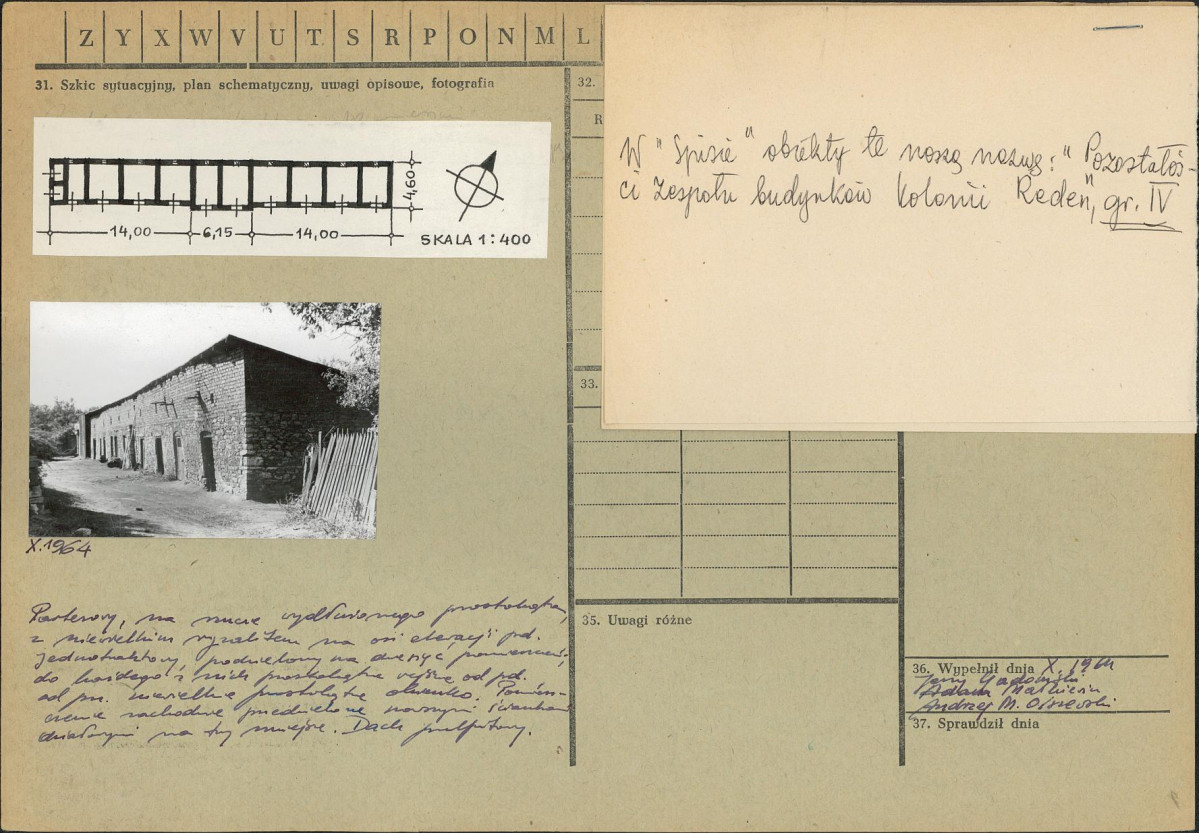 Z Y X W V U T S R P O N M L
31. Szkic sytuacyjny, plan schematyczny, uwagi opisowe, fotografia
32.
R
14,00 6,15 14,00
4,60
SKALA 1:400
W "Spisie" obiekty te noszą nazwę: "Pozostałoś-
ci zespołu budynków kolonii Reden", gr. IV
33.
X. 1964
Parterowy, na rzucie wydłużonego prostokąta,
z niewielkim ryzalitem na osi elewacji pd.
Jednotraktowy, podzielony na dziesięć pomieszczeń,
do każdego z nich prostokątne wejście od pd.
od pn. niewielkie prostokątne okienko. Pomiesz-
czenie zachodnie przedzielone nowszymi ściankami
działowymi na trzy mniejsze. Dach pulpitowy.
35. Uwagi różne
36. Wypełnił dnia X. 1964
Jerzy Gadomski
Adam
Andrzej M. Olszewski
37. Sprawdził dnia